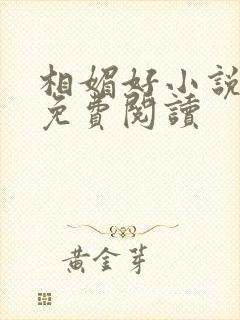 相媚好小說
免費閱讀
黃金芽